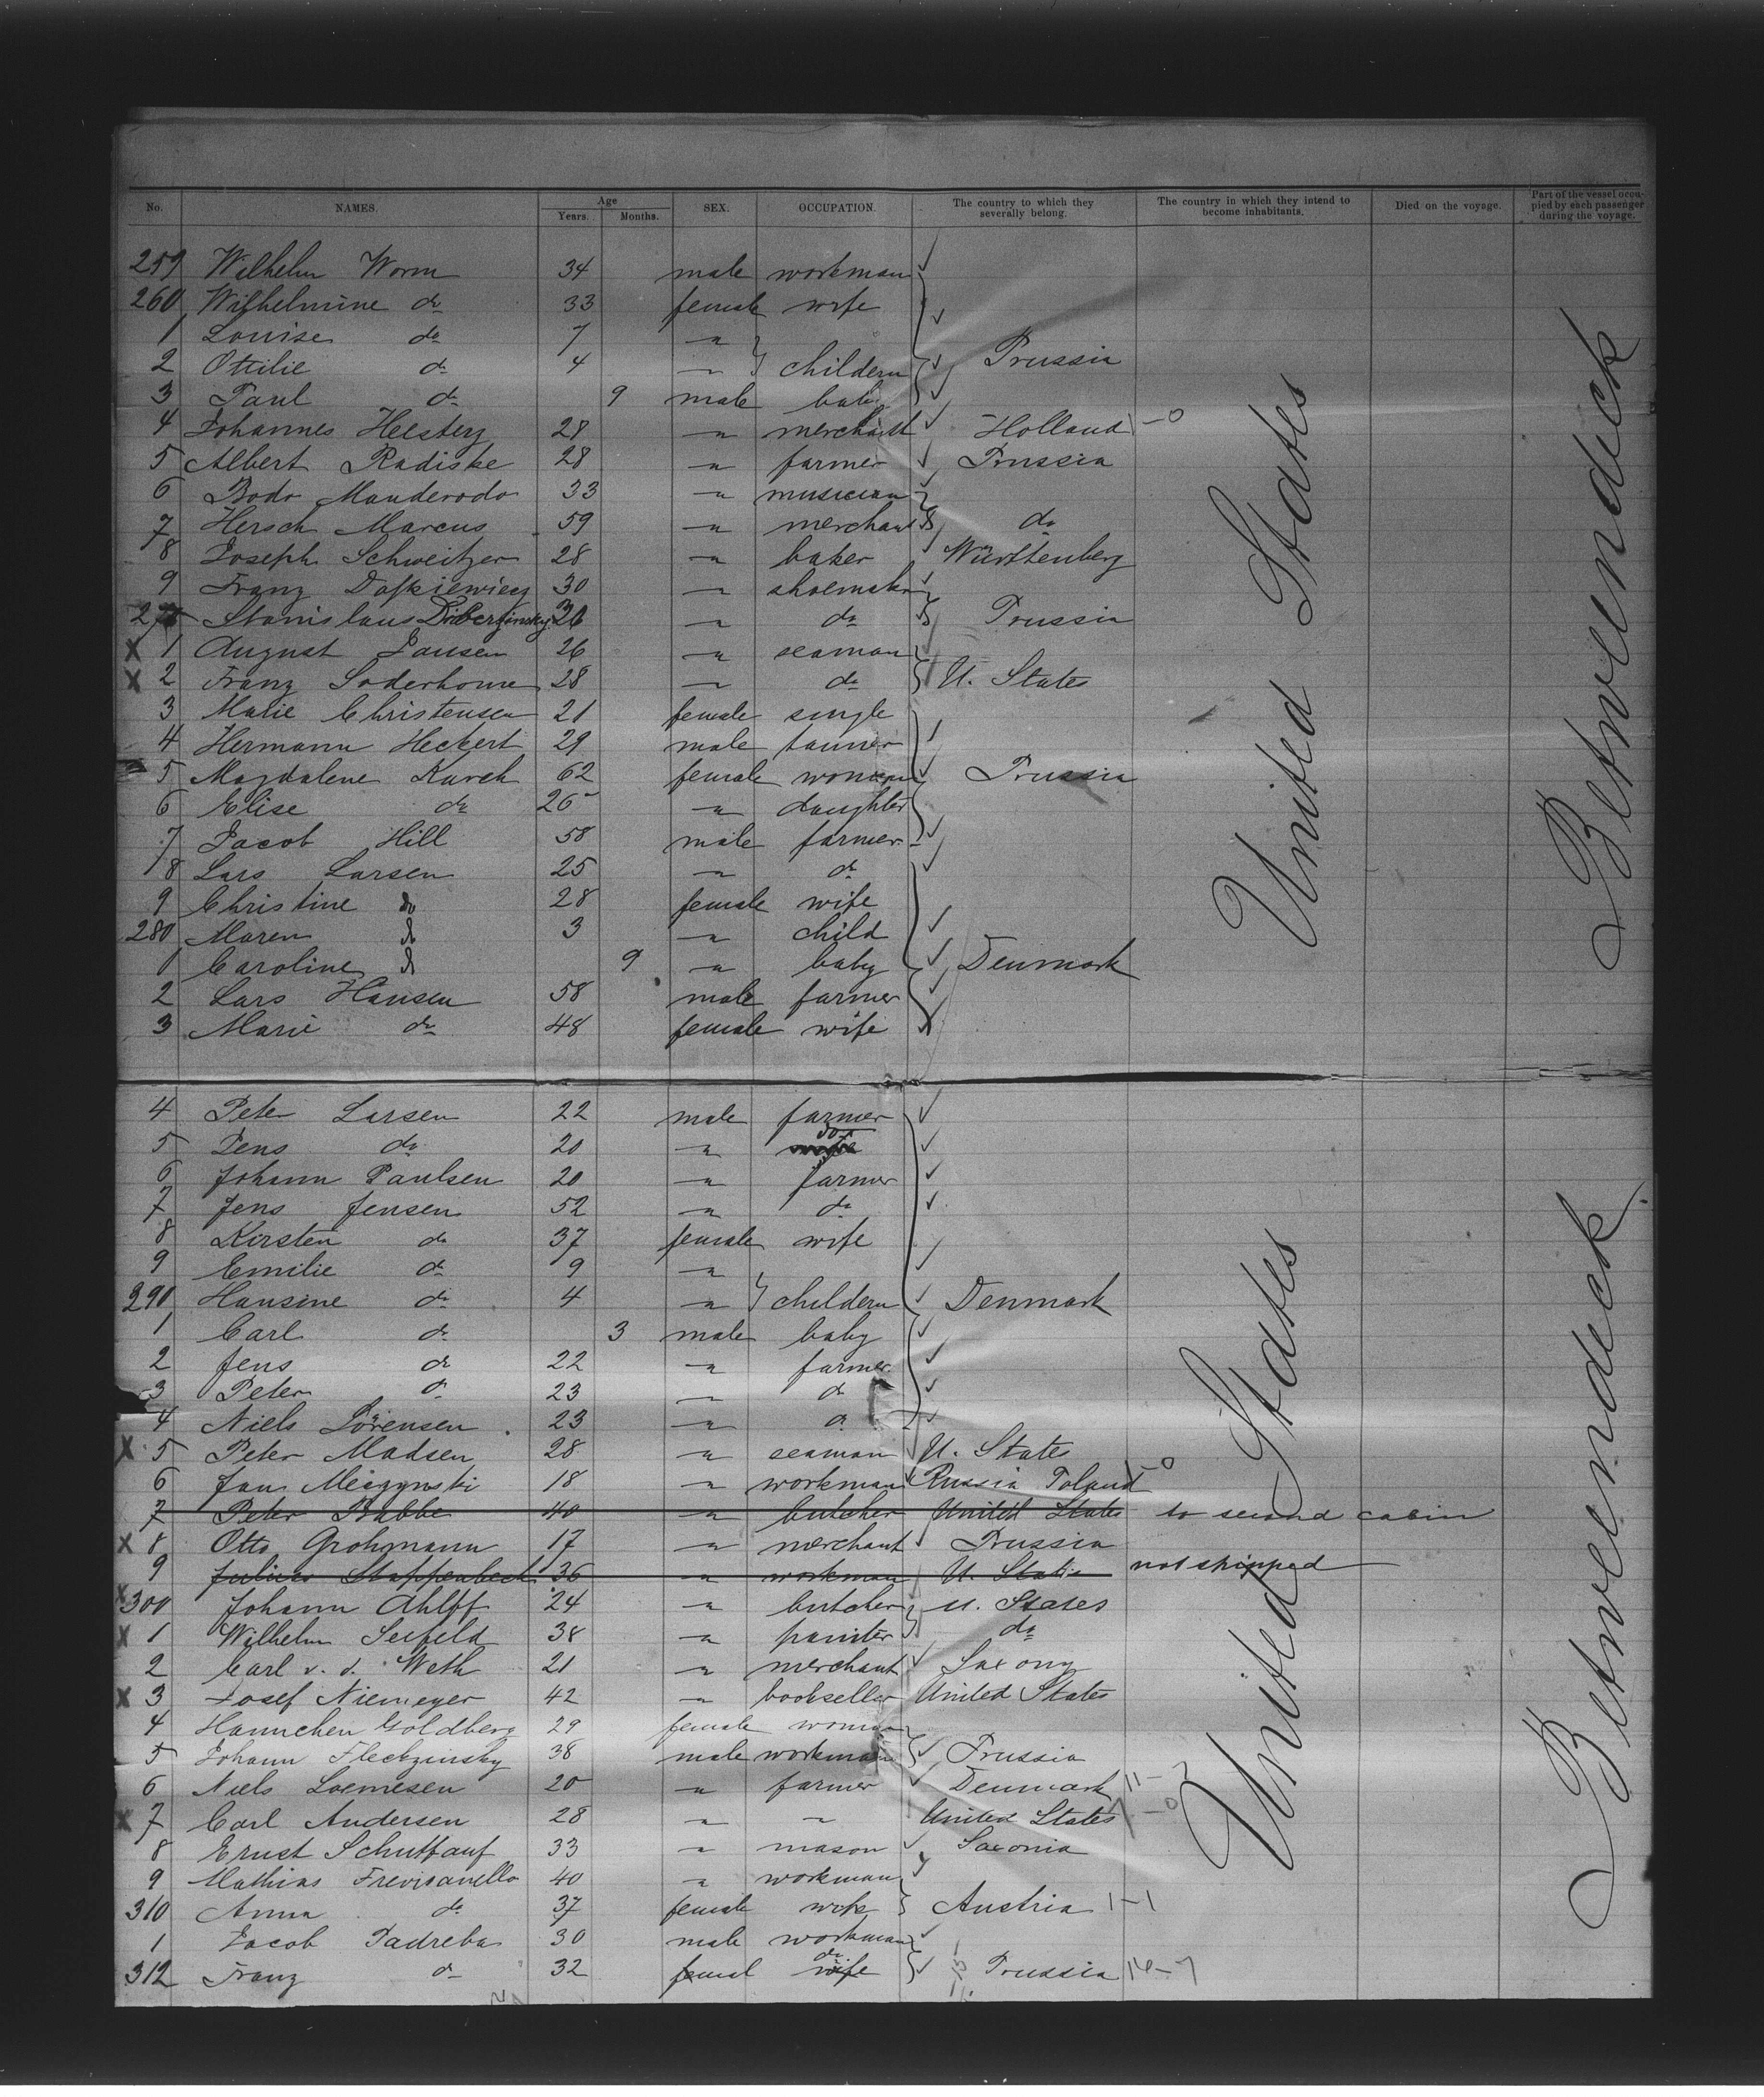 No. NAMES. Age Years. Months. SEX. OCCUPATION. The country to which they severally belong. The country in which they intend to become inhabitants. Died on the voyage. Part of the vessel occupied by each passenger during the voyage.
259 Wilhelm Worm 34 male workman
260 Wilhelmine do 33 female wife
1 Louise do 7 "
2 Ottilie do 4 " childern Prussia
3 Paul do 9 male baby
4 Johannes Helsterg 28 " merchant Holland -0
5 Albert Radiske 28 " farmer Prussia
6 Bodo Manderodo 33 " musician
7 Hersch Marcus 59 " merchant do
8 Joseph Schweitzer 28 " baker Württenberg
9 Franz 30 " shoemaker
27 Stanislaus " do Prussia
X 1 August Jansen 26 " seaman
X 2 Franz Soderhome 28 " do U. States
3 Marie Christensen 21 female single
4 Hermann Heckert 29 male tanner
5 Magdalene Karch 62 female woman Prussia
6 Elise do 26 " daughter
7 Jacob Hill 58 male farmer
8 Lars Larsen 25 " do
9 Christine do 28 female wife
280 Maren do 3 " child
1 Caroline do 9 " baby Denmark
2 Lars Hansen 58 male farmer
3 Marie do 48 female wife
United States
Betweendeck
4 Peter Larsen 22 male farmer
5 Jens do 20 " do
6 Johann Paulsen 20 " farmer
7 Jens Jensen 52 " do
8 Kirsten do 37 female wife
9 Emilie do 9 "
290 Hansine do 4 " childern Denmark
1 Carl do 3 male baby
2 Jens do 22 " farmer
3 Peter do 23 " do
4 Niels Sörensen 23 " do
X 5 Peter Madsen 28 " seaman U. States
6 Jan Meczynski 18 " workman Russia Poland -0
7 Peter Babbe 40 " butcher United States to second cabin
X 8 Otto Grohmann 17 " merchant Prussia
9 Julius Stappenbeck 36 " workman U. States not shipped
X 300 Johann Ahlff 24 " butcher U. States
X 1 Wilhelm Seefeld 38 " painter do
2 Carl v. d. Weth 21 " merchant Saxony
X 3 Josef Niemeyer 42 " bookseller United States
4 Hannchen Goldberg 29 female woman
5 Johann Fleckzinsky 38 male workman Prussia
6 Niels 20 " farmer Denmark
X 7 Carl Andersen 28 " " United States
8 Ernst Schuttauf 33 " mason Saxonia
9 Mathias Trevisanello 40 " workman
310 Anna do 37 female wife Austria 1-1
1 Jacob Padreba 30 male workman
312 Franz do 32 femal wife do Prussia
United States
Betweendeck